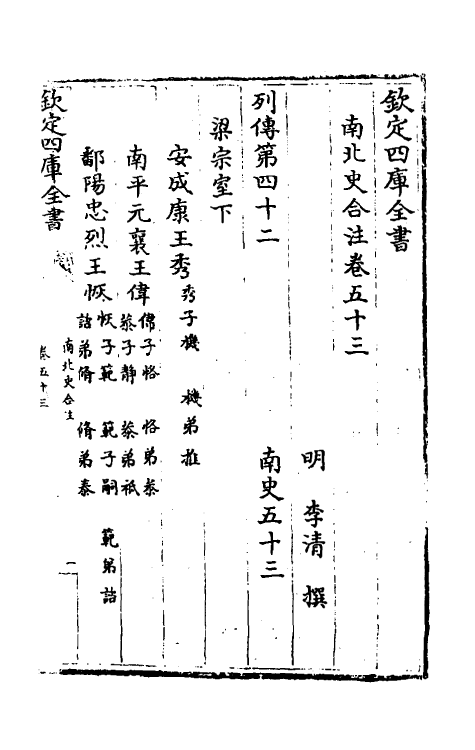 欽定四庫全書
南北史合注卷五十三
明 李清 撰
列傳第四十二 南史五十三
梁宗室下
安成康王秀 秀子機 機弟推
南平元襄王偉 偉子恪 恪弟恭
恭子靜 恭弟祗
鄱陽忠烈王恢 恢子範 範子嗣 範弟諮
諮弟脩 脩弟泰
欽定四庫全書
南北史合注
卷五十三
一